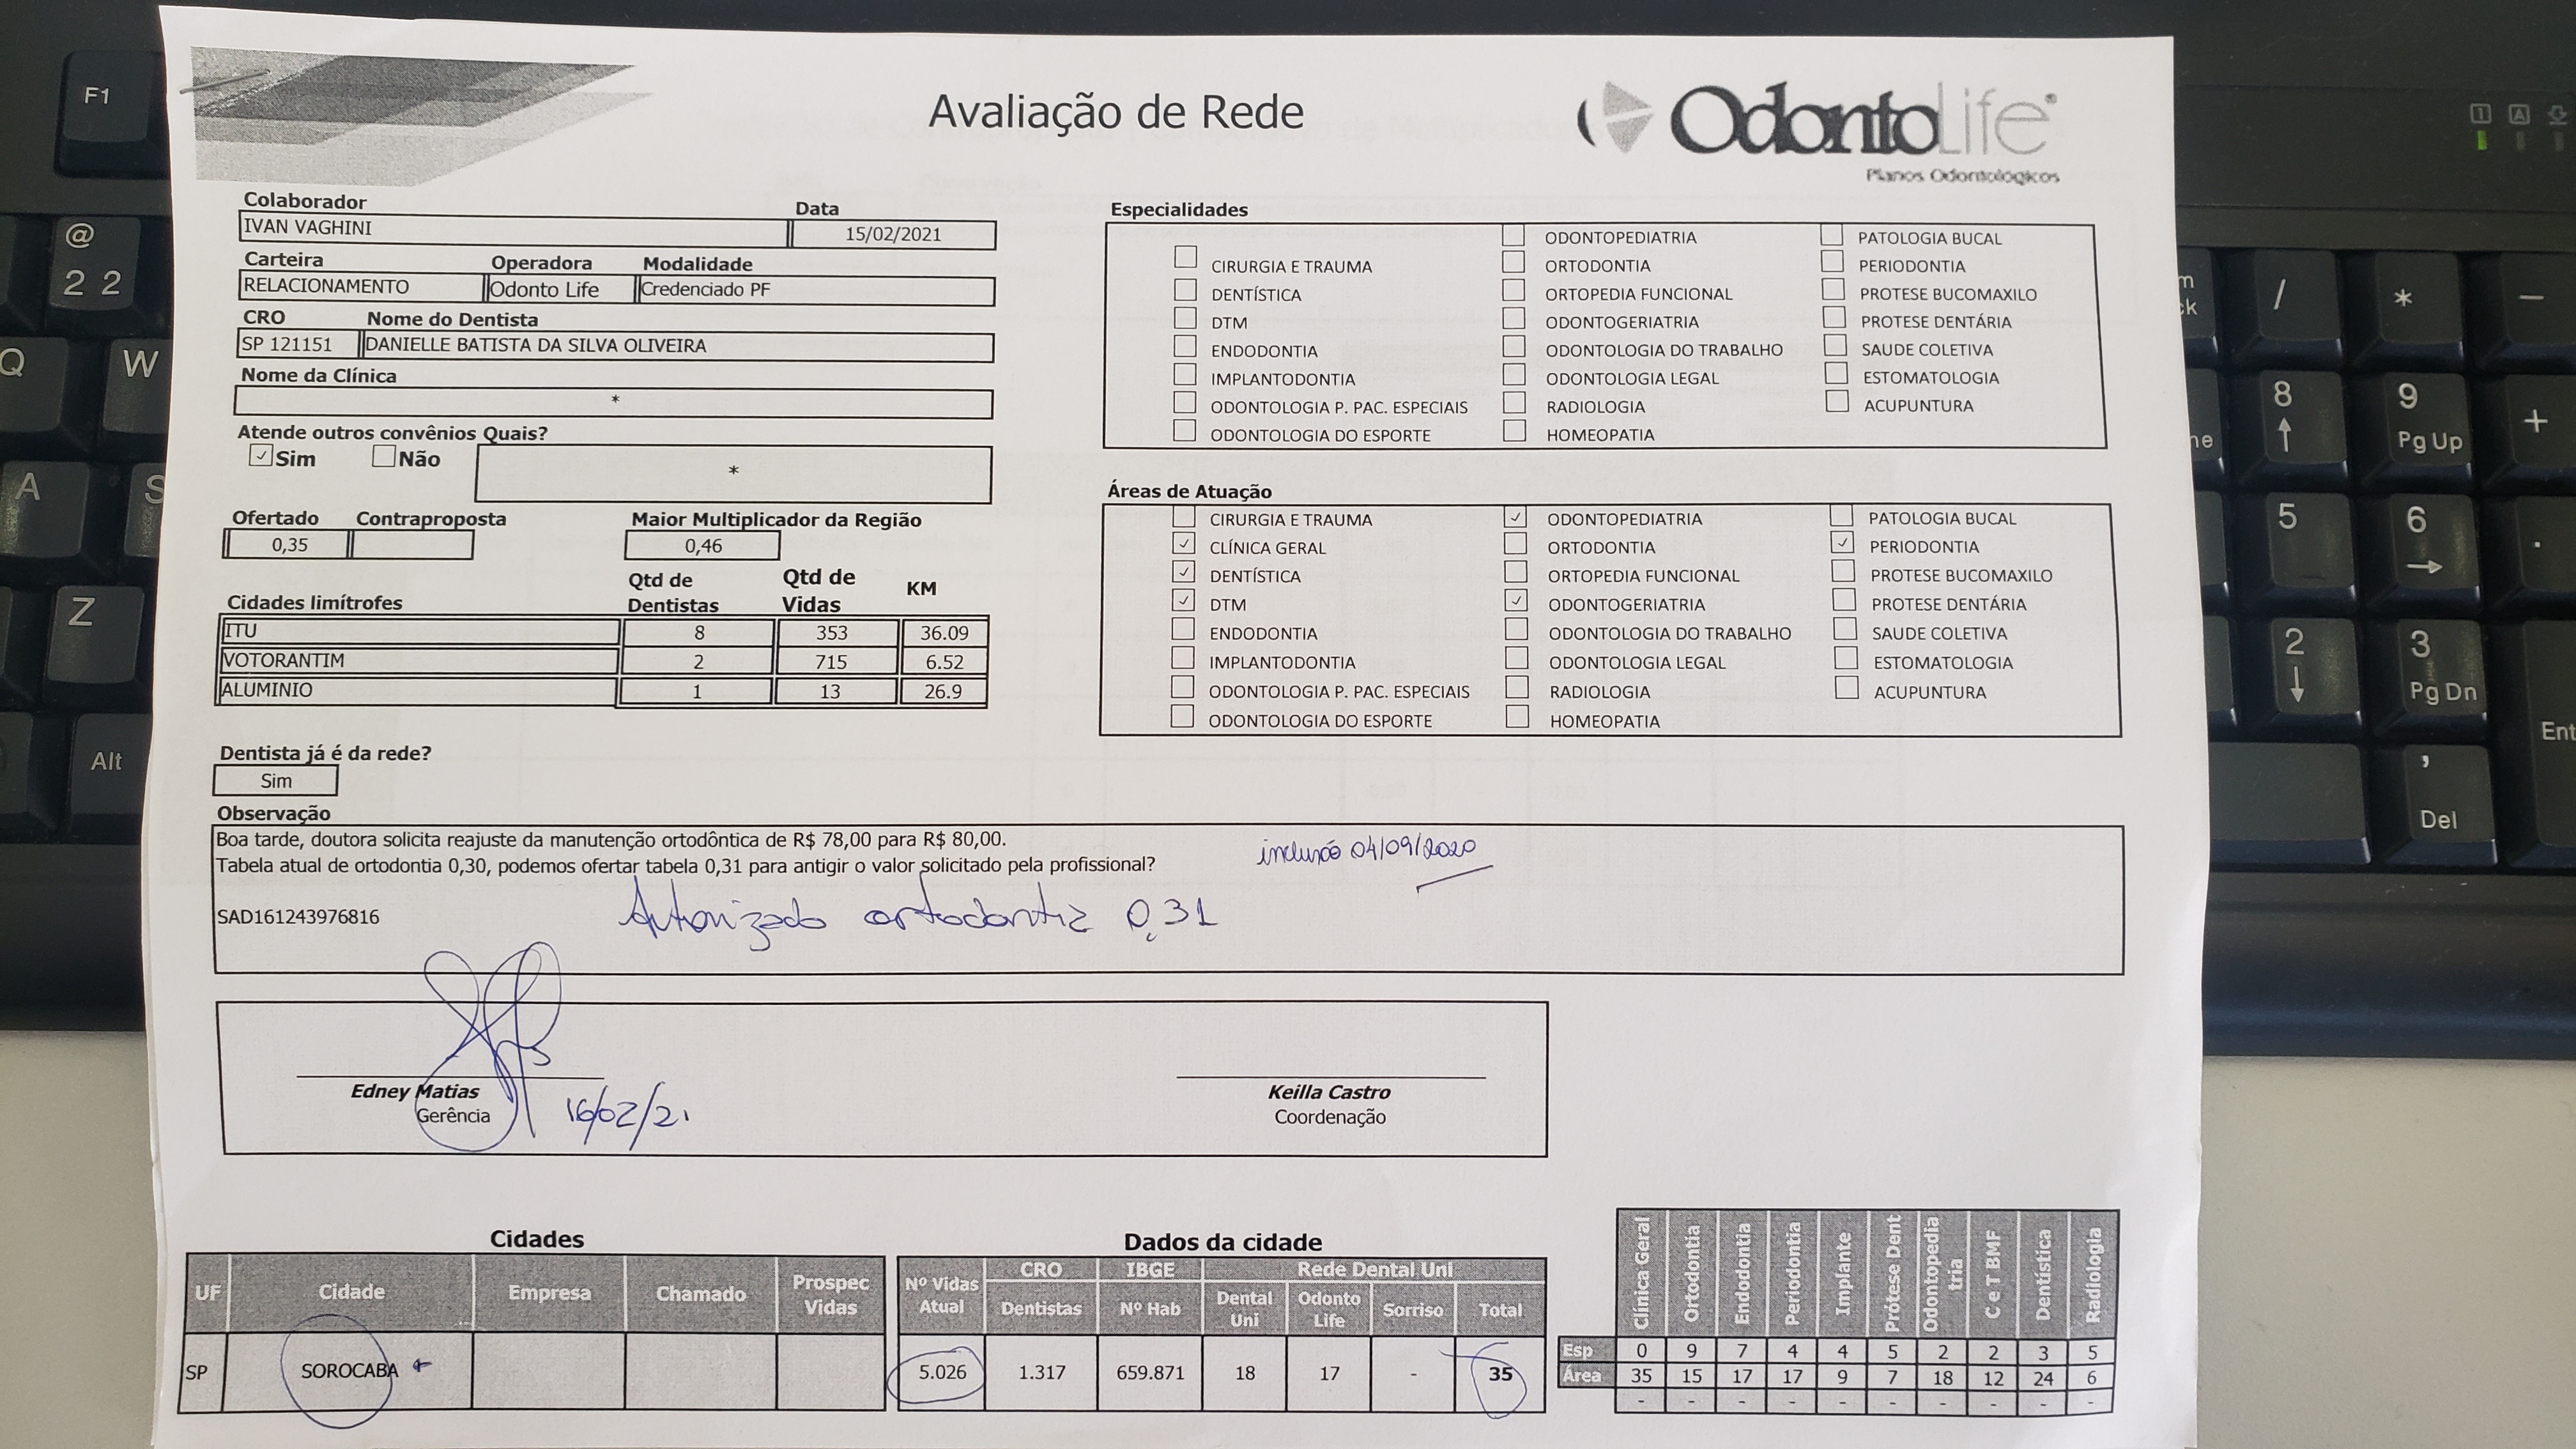 Avaliação de Rede
OdontoLife
Planos Odontológicos
Colaborador Data
IVAN VAGHINI 15/02/2021
Carteira Operadora Modalidade
RELACIONAMENTO Odonto Life Credenciado PF
CRO Nome do Dentista
SP 121151 DANIELLE BATISTA DA SILVA OLIVEIRA
Nome da Clínica
*
Atende outros convênios Quais?
✓ Sim Não *
Ofertado Contraproposta Maior Multiplicador da Região
0,35 0,46
Cidades limítrofes Qtd de Dentistas Qtd de Vidas KM
ITU 8 353 36.09
VOTORANTIM 2 715 6.52
ALUMINIO 1 13 26.9
Dentista já é da rede?
Sim
Especialidades
ODONTOPEDIATRIA PATOLOGIA BUCAL
CIRURGIA E TRAUMA ORTODONTIA PERIODONTIA
DENTÍSTICA ORTOPEDIA FUNCIONAL PROTESE BUCOMAXILO
DTM ODONTOGERIATRIA PROTESE DENTÁRIA
ENDODONTIA ODONTOLOGIA DO TRABALHO SAUDE COLETIVA
IMPLANTODONTIA ODONTOLOGIA LEGAL ESTOMATOLOGIA
ODONTOLOGIA P. PAC. ESPECIAIS RADIOLOGIA ACUPUNTURA
ODONTOLOGIA DO ESPORTE HOMEOPATIA
Áreas de Atuação
CIRURGIA E TRAUMA ✓ ODONTOPEDIATRIA PATOLOGIA BUCAL
✓ CLÍNICA GERAL ORTODONTIA ✓ PERIODONTIA
✓ DENTÍSTICA ORTOPEDIA FUNCIONAL PROTESE BUCOMAXILO
✓ DTM ✓ ODONTOGERIATRIA PROTESE DENTÁRIA
ENDODONTIA ODONTOLOGIA DO TRABALHO SAUDE COLETIVA
IMPLANTODONTIA ODONTOLOGIA LEGAL ESTOMATOLOGIA
ODONTOLOGIA P. PAC. ESPECIAIS RADIOLOGIA ACUPUNTURA
ODONTOLOGIA DO ESPORTE HOMEOPATIA
Observação
Boa tarde, doutora solicita reajuste da manutenção ortodôntica de R$ 78,00 para R$ 80,00.
inclusão 04/09/2020
Tabela atual de ortodontia 0,30, podemos ofertar tabela 0,31 para antigir o valor solicitado pela profissional?
SAD161243976816 Autorizado ortodontia 0,31
Edney Matias Keilla Castro
Gerência 16/02/21 Coordenação
Cidades
UF Cidade Empresa Chamado Prospec Vidas
SP SOROCABA
Dados da cidade
Nº Vidas Atual CRO IBGE Rede Dental Uni
Dentistas Nº Hab Dental Uni Odonto Life Sorriso Total
5.026 1.317 659.871 18 17 - 35
Clínica Geral Ortodontia Endodontia Periodontia Implante Prótese Dent Odontopedia tria C e T BMF Dentística Radiologia
Esp 0 9 7 4 4 5 2 2 3 5
Área 35 15 17 17 9 7 18 12 24 6
- - - - - - - - - -
F1
@
2 2
Q W
A S
Z
Alt
/ * −
8 9 +
Pg Up
5 6 .
2 3
Pg Dn
Ent
,
Del